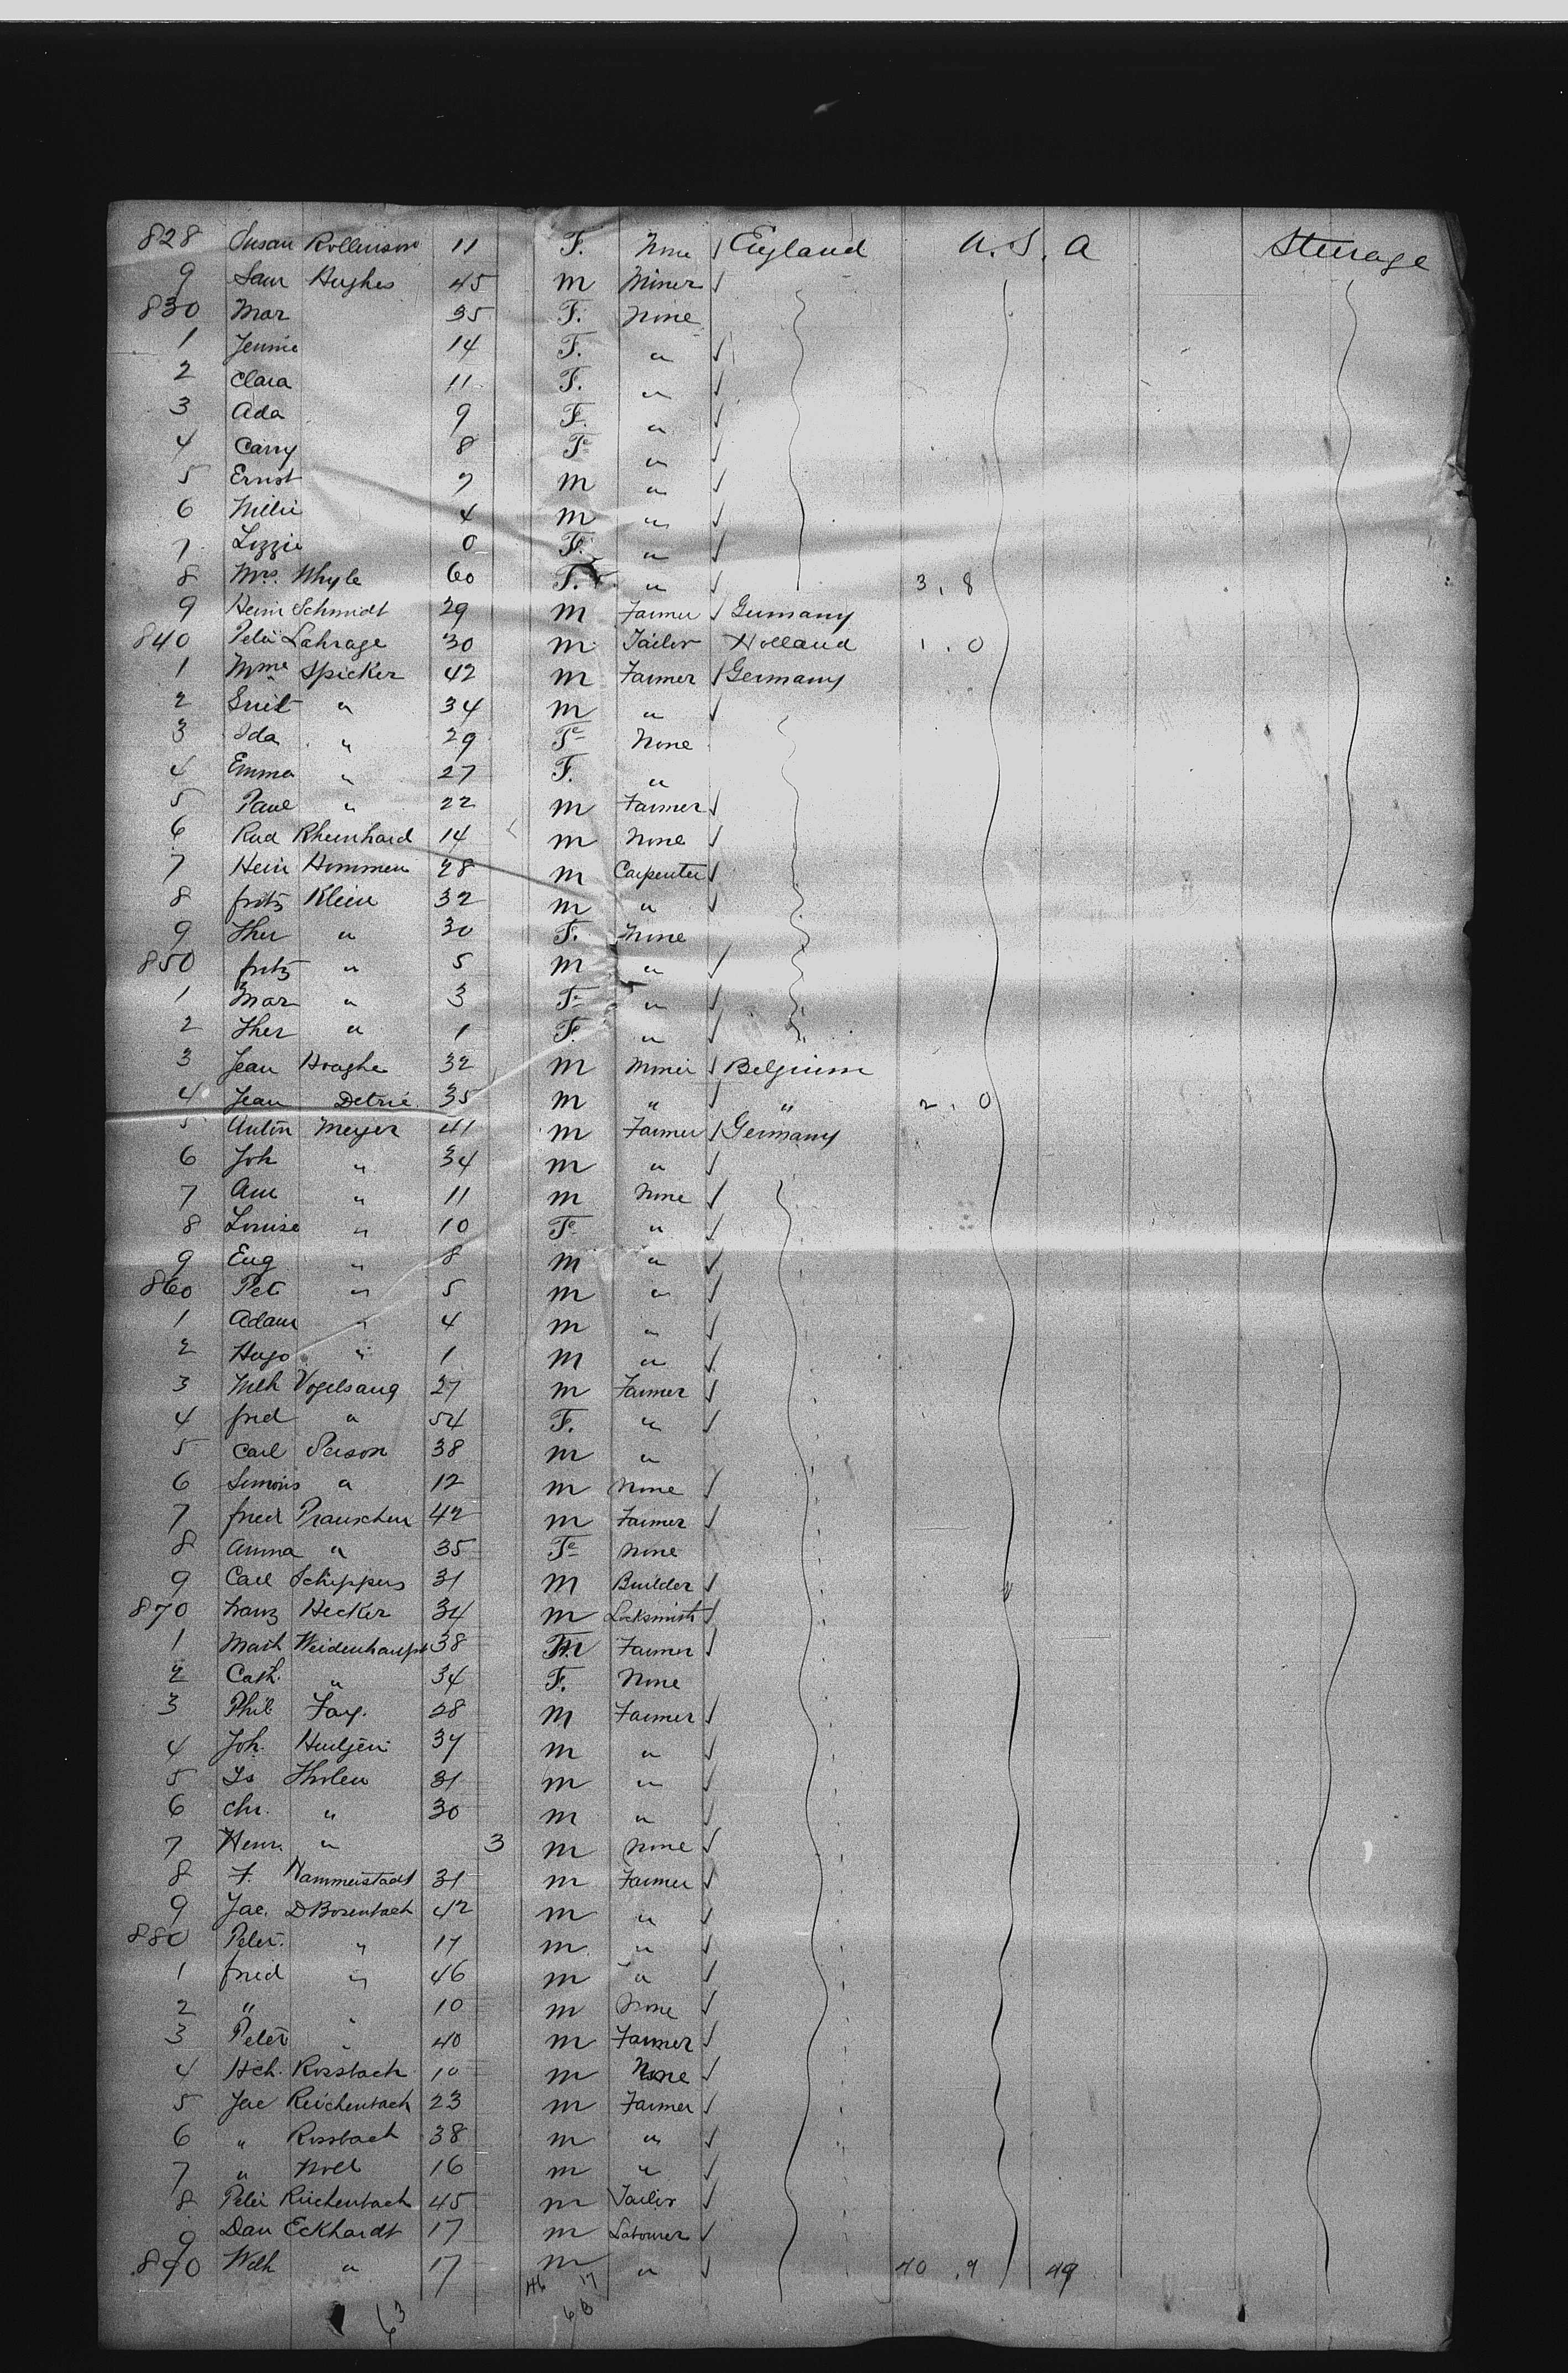 828 Susan Rollinson 11 F. None ✓ England U.S.A Steerage
9 Sam Hughes 45 m Miner ✓
830 Mar 35 F. None
1 Jennie 14 F. " ✓
2 Clara 11 F. " ✓
3 Ada 9 F. " ✓
4 Carry 8 Fe " ✓
5 Ernst 7 m " ✓
6 Willie 4 m " ✓
7 Lizzie 0 F. " ✓
8 Mrs. Whyle 60 F. " ✓ 3,8
9 Heinr Schmidt 29 m Farmer ✓ Germany
840 Peter Lahrage 30 m Tailor Holland 1.0
1 Mme Spicker 42 m Farmer ✓ Germany
2 " 34 m " ✓
3 Ida " 29 Fe None
4 Emma " 27 F. "
5 Paul " 22 m Farmer ✓
6 Rud Rheinhard 14 m None ✓
7 Hein Hommen 28 m Carpenter ✓
8 fritz Klein 32 m " ✓
9 Ther " 30 F. None
850 fritz " 5 m " ✓
1 Mar " 3 Fe " ✓
2 Ther " 1 F. " ✓
3 Jean Hraghe 32 m Miner ✓ Belgium
4 Jean Detrie 35 m " ✓ " 2.0
5 Anton Meyer 41 m Farmer ✓ Germany
6 Joh " 34 m " ✓
7 Am " 11 m None ✓
8 Louise " 10 Fe " ✓
9 Eug " 8 m " ✓
860 Pet " 5 m " ✓
1 Adam " 4 m " ✓
2 Hugo " 1 m " ✓
3 Wilh Vogelsang 27 m Farmer ✓
4 fred " 54 F. " ✓
5 Carl Person 38 m "
6 Simons " 12 m None ✓
7 fried Prauschen 42 m Farmer ✓
8 Anna " 35 Fe None
9 Carl Schippers 31 m Builder ✓
870 Franz Hecker 34 m Locksmith ✓
1 Math Weidenhaupt 38 m Farmer ✓
2 Cath. " 34 F. None
3 Phil Fay. 28 m Farmer ✓
4 Joh. Hutgen 34 m " ✓
5 Is Tholen 31 m " ✓
6 Chr. " 30 m " ✓
7 Henr. " 3 m None ✓
8 F. Hammerstadt 31 m Farmer ✓
9 Jac. D Bosenbach 42 m " ✓
880 Peter. " 17 m " ✓
1 fried " 46 m " ✓
2 " " 10 m None ✓
3 Peter " 40 m Farmer ✓
4 Hch. Rossbach 10 m None ✓
5 Jac Reichenbach 23 m Farmer ✓
6 " Rossbach 38 m " ✓
7 " Noll 16 m " ✓
8 Peter Reichenbach 45 m Tailor ✓
9 Dan Eckhardt 17 m Labourer ✓
890 Wilh " 17 m " ✓ 40.9 49
46 17
63 63